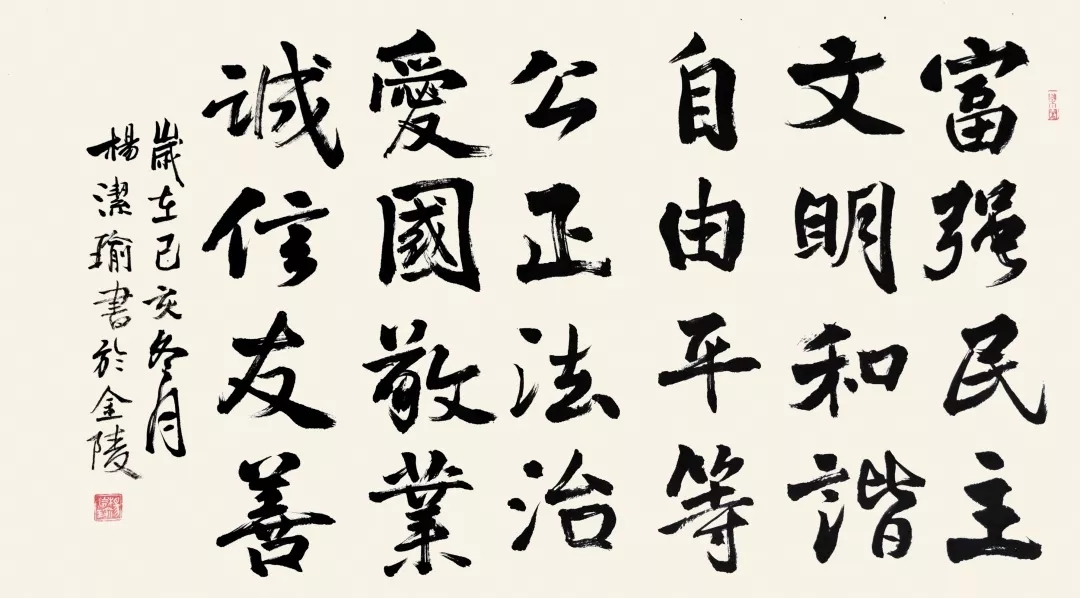 富强民主
文明和谐
自由平等
公正法治
愛國敬業
誠信友善
歲在己亥冬月
楊潔瑜書於金陵